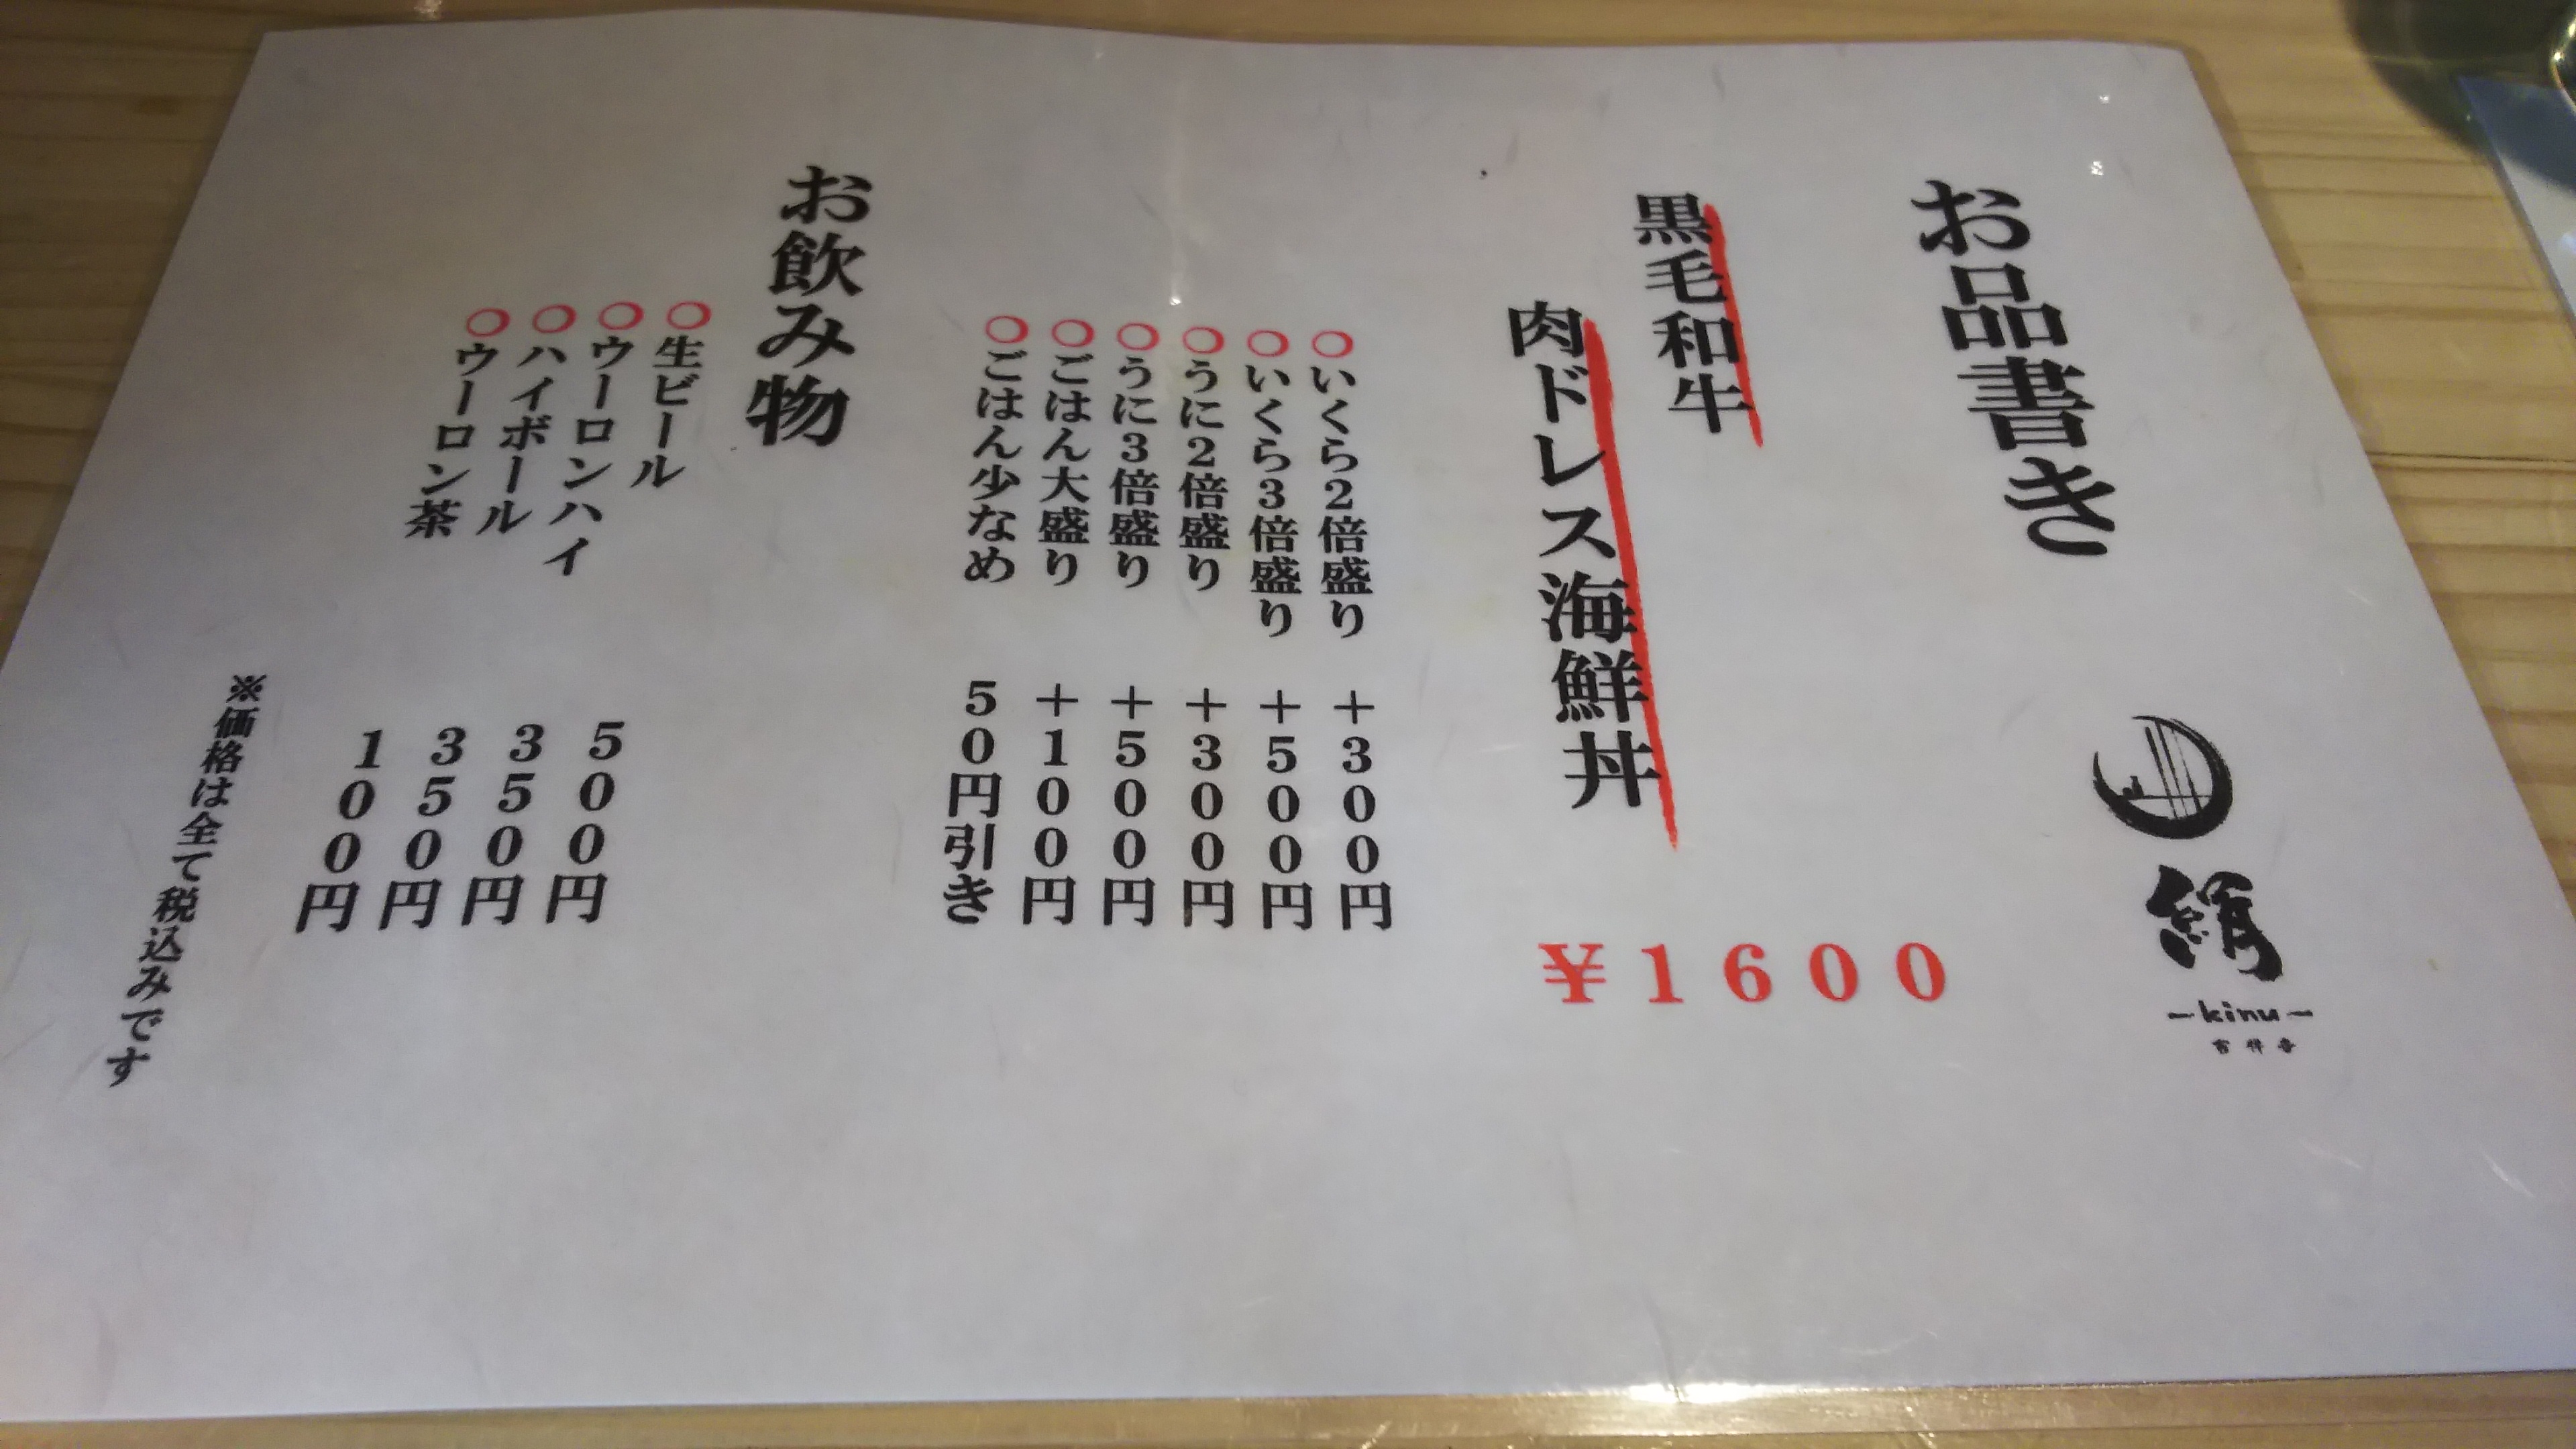 お品書き
絹
-kinu-
黒毛和牛
肉ドレス海鮮丼
¥1600
○いくら2倍盛り +300円
○いくら3倍盛り +500円
○うに2倍盛り +300円
○うに3倍盛り +500円
○ごはん大盛り +100円
○ごはん少なめ 50円引き
お飲み物
○生ビール 500円
○ウーロンハイ 350円
○ハイボール 350円
○ウーロン茶 100円
※価格は全て税込みです